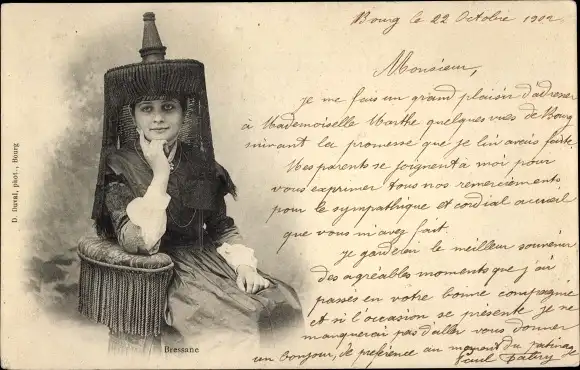 Bourg le 22 Octobre 1902
Monsieur,
je me fais un grand plaisir d'adresser
à Mademoiselle Marthe quelques vues de Bourg
suivant la promesse que je lui avais faite.
Mes parents se joignent à moi pour
vous exprimer tous nos remerciements
pour le sympathique et cordial accueil
que vous m'avez fait.
je garderai le meilleur souvenir
des agréables moments que j'ai
passés en votre bonne compagnie
et si l'occasion se présente je ne
manquerai pas d'aller vous donner
un bonjour, de préférence au moment du patinage
Paul
D. Duval, phot., Bourg
Bressane